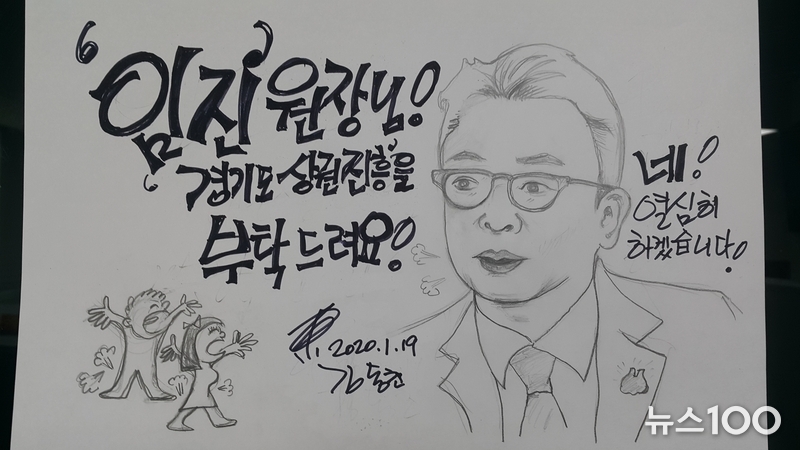 '임진' 원장님!
'경기도 상권진흥'을
부탁드려요!
네!
열심히
하겠습니다!
2020.1.19
뉴스100